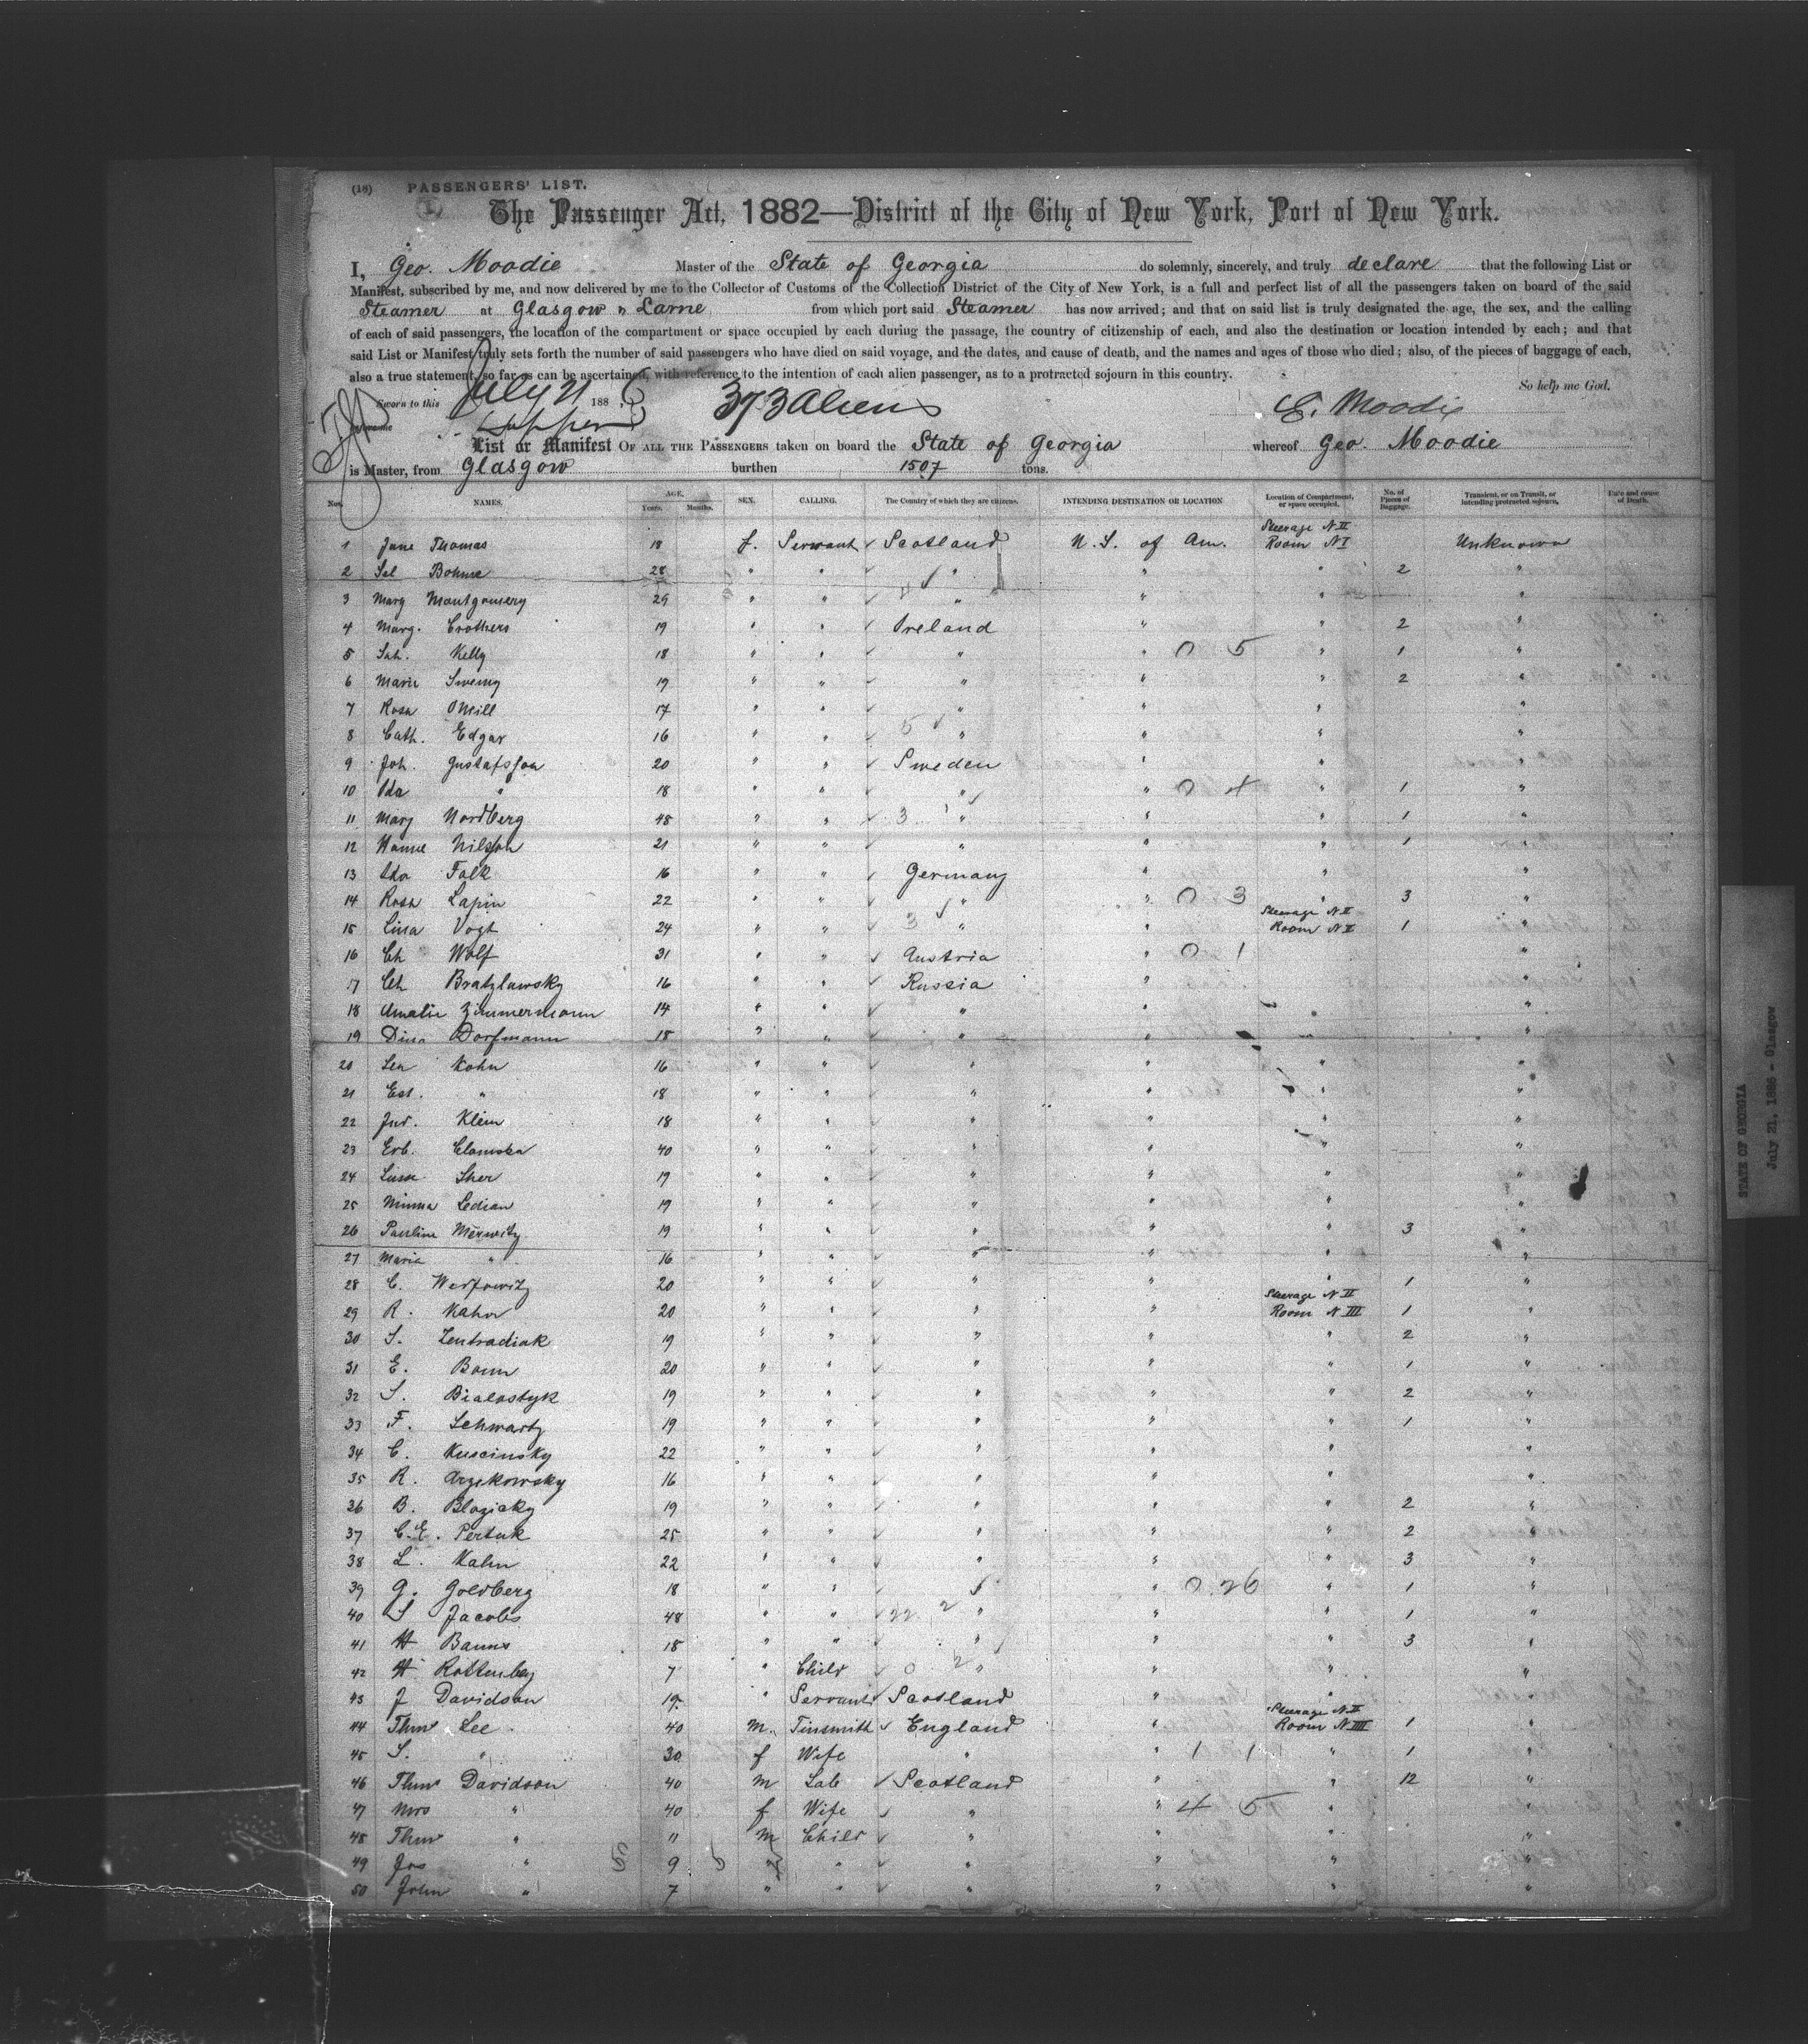 (18) PASSENGERS' LIST.
The Passenger Act, 1882—District of the City of New York, Port of New York.
I, Geo. Moodie Master of the State of Georgia do solemnly, sincerely, and truly declare that the following List or
Manifest, subscribed by me, and now delivered by me to the Collector of Customs of the Collection District of the City of New York, is a full and perfect list of all the passengers taken on board of the said
Steamer at Glasgow & Larne from which port said Steamer has now arrived; and that on said list is truly designated the age, the sex, and the calling
of each of said passengers, the location of the compartment or space occupied by each during the passage, the country of citizenship of each, and also the destination or location intended by each; and that
said List or Manifest truly sets forth the number of said passengers who have died on said voyage, and the dates, and cause of death, and the names and ages of those who died; also, of the pieces of baggage of each,
also a true statement, so far as can be ascertained, with reference to the intention of each alien passenger, as to a protracted sojourn in this country.
So help me God.
Sworn to this July 21 1886 373 Aliens G. Moodie
List or Manifest OF ALL THE PASSENGERS taken on board the State of Georgia whereof Geo. Moodie
is Master, from Glasgow burthen 1507 tons.
Nos. NAMES. AGE. Years. Months. SEX. CALLING. The Country of which they are citizens. INTENDING DESTINATION OR LOCATION Location of Compartment, or space occupied. No. of Pieces of Baggage. Transient, or on Transit, or intending protracted sojourn. Date and cause of Death.
1 Jane Thomas 18 f. Servant Scotland U. S. of Am. Steerage N II Room N I Unknown
2 Sel Bohme 28 " " " " " 2 "
3 Mary Montgomery 29 " " " " " "
4 Marg. Crothers 19 " " Ireland " " 2 "
5 Sah. Kelly 18 " " " " 0 5 " 1 "
6 Marie Sweeny 19 " " " " " 2 "
7 Rosa O'Neill 17 " " " " " "
8 Cath. Edgar 16 " " " " " "
9 Joh. Gustafsson 20 " " Sweden " " "
10 Ida " 18 " " " " 0 4 " 1 "
11 Mary Nordberg 48 " " 3 " " " 1 "
12 Hanne Nilsson 21 " " " " " 1 "
13 Ida Falk 16 " " Germany " " "
14 Rosa Lapin 22 " " " " 0 3 " 3 "
15 Lina Vogt 24 " " 3 " " Steerage N II Room N II 1 "
16 Ch Wolf 31 " " Austria " 0 1 "
17 Ch Bratzlawsky 16 " " Russia " "
18 Amalie Zimmermann 14 " " " " "
19 Dina Dorfmann 18 " " " " "
20 Lea Kohn 16 " " " " " "
21 Est. " 18 " " " " " "
22 Jud. Klein 18 " " " " " "
23 Erb. 40 " " " " " "
24 Sher 19 " " " " " "
25 Minna Ledian 19 " " " " " "
26 Pauline Merwitz 19 " " " " " 3 "
27 Maria " 16 " " " " " "
28 C. Werfowitz 20 " " " " " 1 "
29 R. Kahn 20 " " " " Steerage N II Room N III 1 "
30 S. Zentradiak 19 " " " " " 2 "
31 E. Bonn 20 " " " " " 1 "
32 S. Bialostyk 19 " " " " " 2 "
33 F. Schwartz 19 " " " " " 1 "
34 C. Kuscinsky 22 " " " " " "
35 R. Arzekowsky 16 " " " " " "
36 B. Blazicky 19 " " " " " 2 "
37 C. E. Pertuk 25 " " " " " 2 "
38 L. Kahn 22 " " " " " 3 "
39 G. Goldberg 18 " " " " 0 26 " 1 "
40 S Jacobs 48 " " 22 2 " " " 1 "
41 H Banns 18 " " " " " 3 "
42 H Rottenberg 7 " Child 0 2 " " " "
43 J Davidson 19 " Servant Scotland " " "
44 Thos Lee 40 m. Tinsmith England " Steerage N II Room N IIII 1 "
45 S. " 30 f Wife " " 1 1 " 1 "
46 Thos Davidson 40 m Lab Scotland " " 12 "
47 Mrs " 40 f Wife " " 4 5 " "
48 Thos " 11 m Child " " " "
49 Jas " 5 9 5 " " " " " "
50 John " 7 " " " " " "
STATE OF GEORGIA
July 21, 1886 - Glasgow